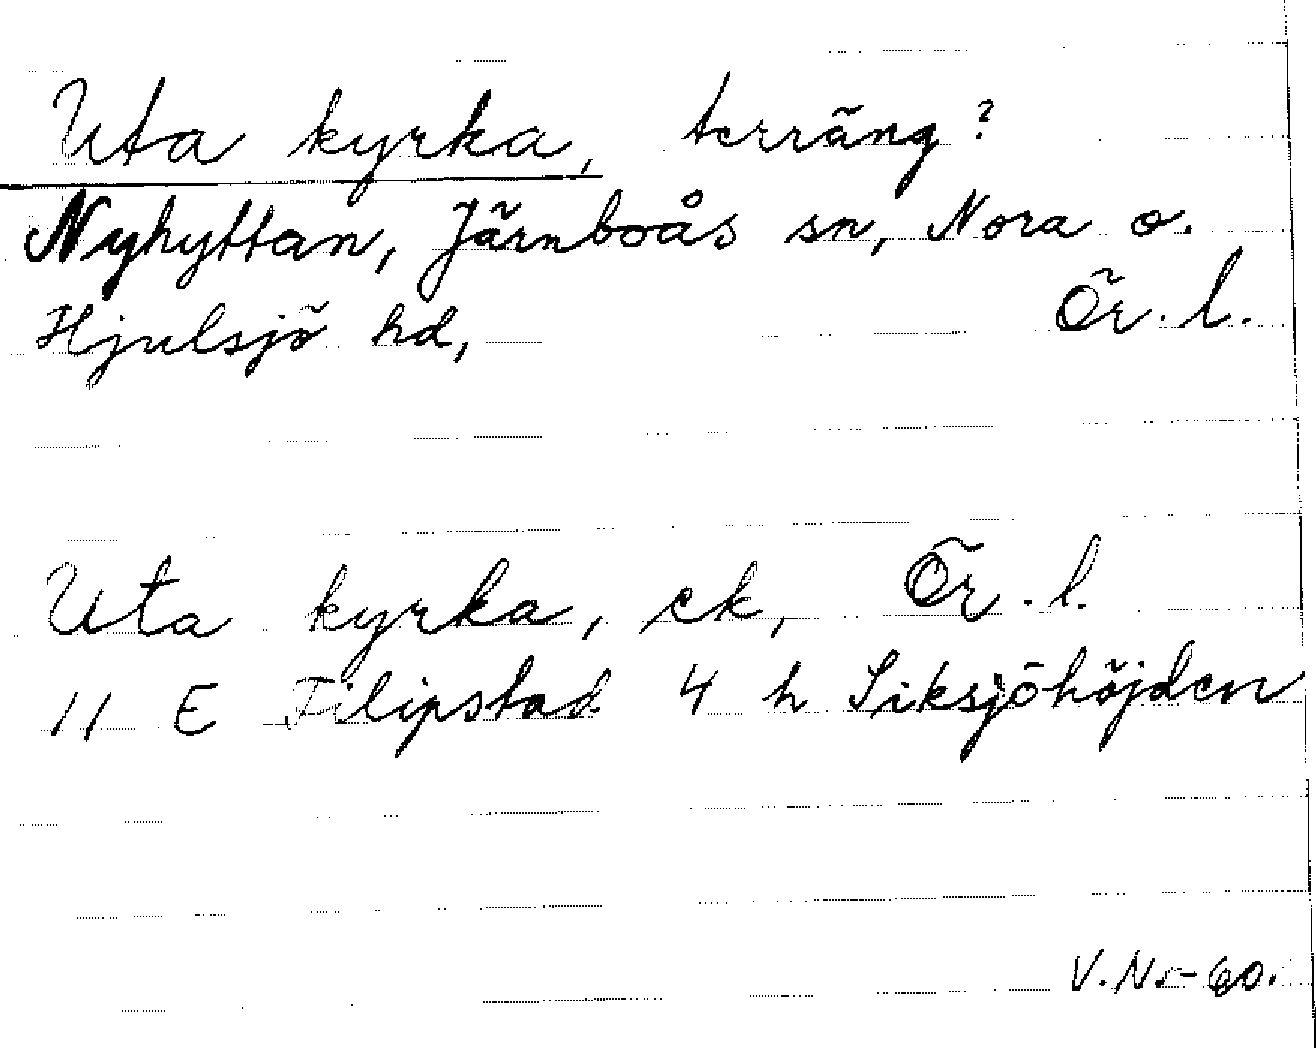 Uta kyrka, terräng?
Nyhyttan, Järnboås sn, Nora o.
Hjulsjö hd, Ör. l.
Uta kyrka, ek, Ör. l.
11 E Filipstad 4 h Siksjöhöjden
V.N.-60.